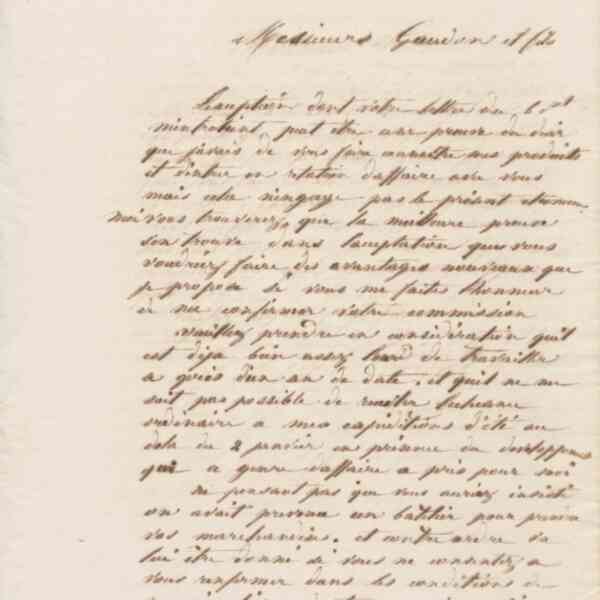 Messieurs Gourdon et fils
L'exception dont votre lettre du 6 ct
m'entretient peut être une preuve du désir
que javais de vous faire connaître mes produits
et d'entrer en relation d'affaire avec vous
mais cela n'engage pas le présent et comme
moi vous trouverez que la meilleure preuve
s'en trouve dans l'acceptation que vous
voudriez faire des avantages nouveaux que
je propose si vous me faites l'honneur
de me confirmer votre commission
Veuillez prendre en considération qu'il
est déja bien assez lourd de travailler
a près d'un an de date, et quil ne me
soit pas possible de reculer l'échéance
ordinaire a mes expéditions d'été au
dela du 2 janvier en présence du développem
que a genre d'affaire a pris pour moi
ne pensant pas que vous auriez insisté
on avait prévenu un batelier pour prendre
vos marchandises. et contre ordre va
lui être donné si vous ne consentez a
vous renfermer dans les conditions de